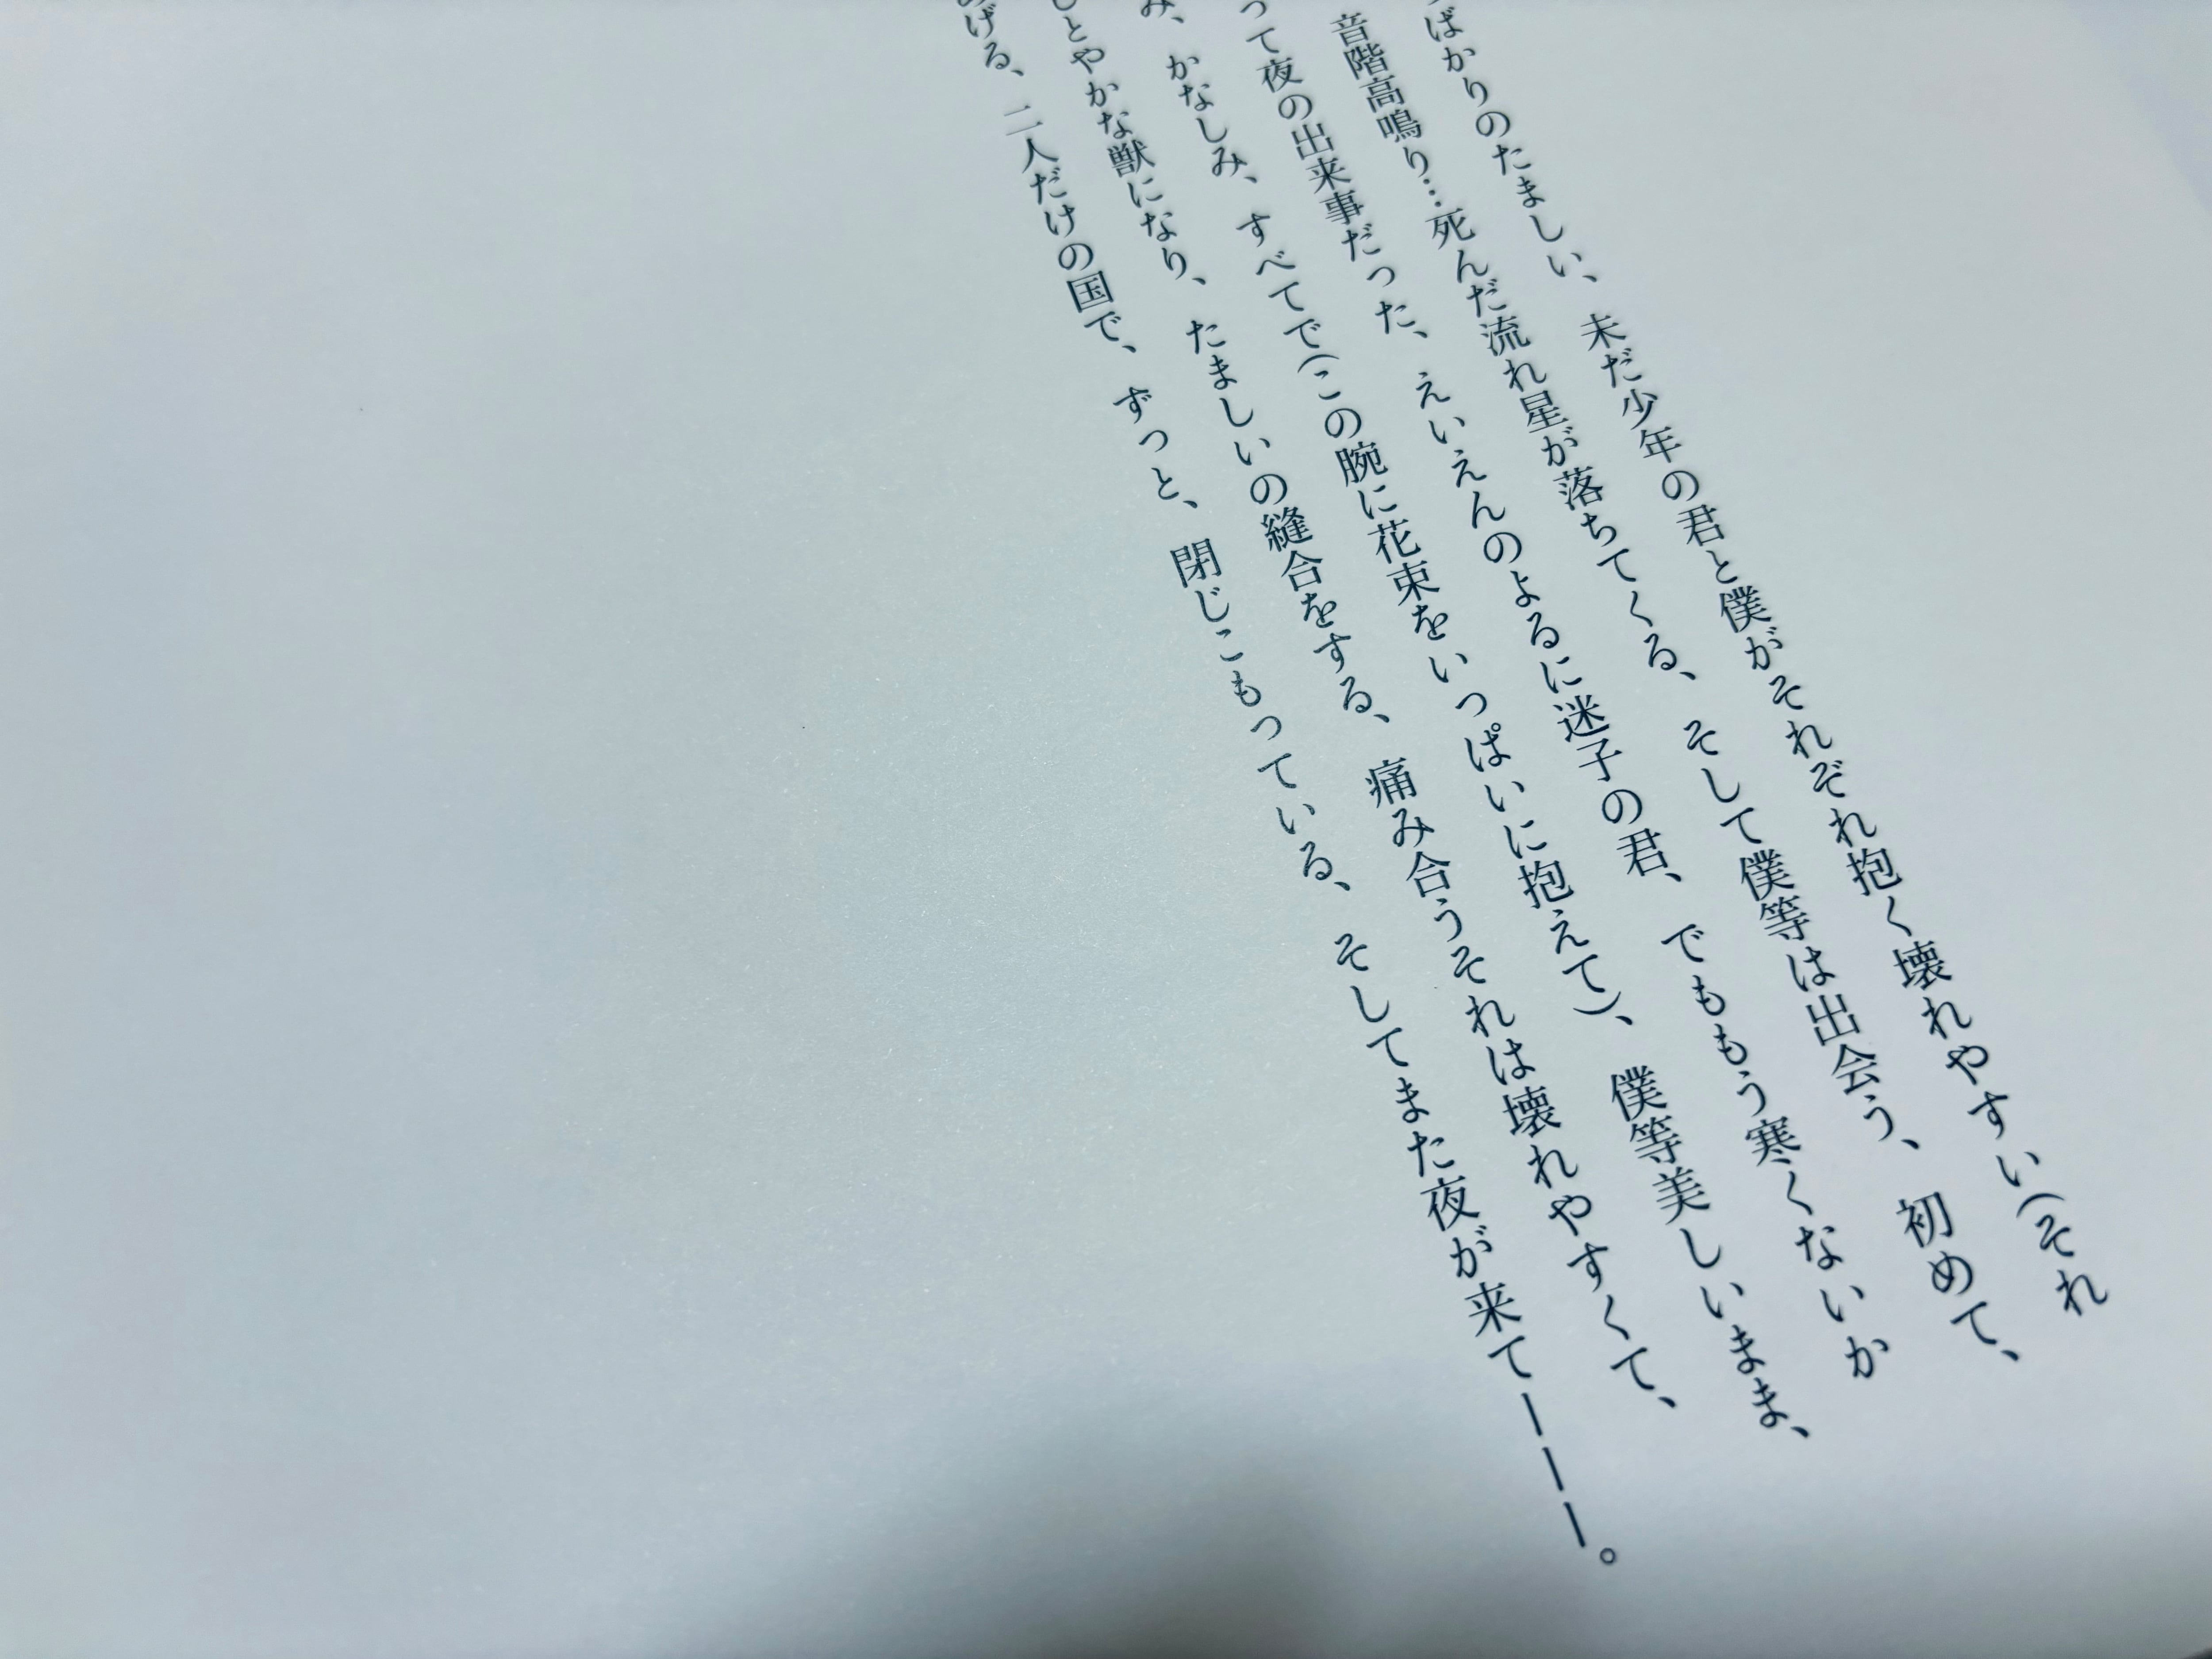 ばかりのたましい、未だ少年の君と僕がそれぞれ抱く壊れやすい(それ
音階高鳴り…死んだ流れ星が落ちてくる、そして僕等は出会う、初めて、
って夜の出来事だった、えいえんのよるに迷子の君、でももう寒くないか
み、かなしみ、すべてで(この腕に花束をいっぱいに抱えて)、僕等美しいまま、
しとやかな獣になり、たましいの縫合をする、痛み合うそれは壊れやすくて、
あげる、二人だけの国で、ずっと、閉じこもっている、そしてまた夜が来てーーー。